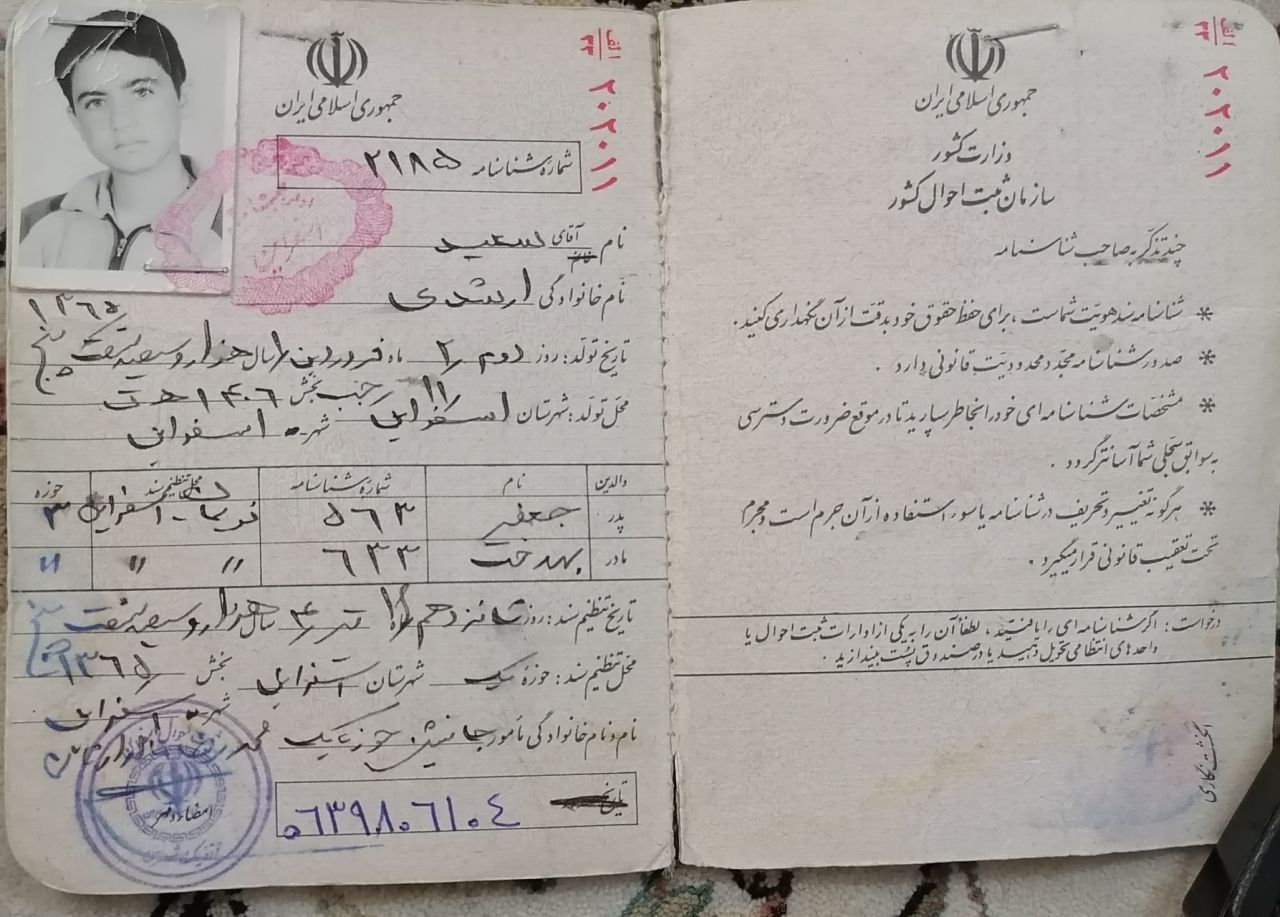 الف
۳۳
۲۰۲۰۱۱
جمهوری اسلامی ایران
وزارت کشور
سازمان ثبت احوال کشور
چند تذکر به صاحب شناسنامه
* شناسنامه سند هویت شماست ، برای حفظ حقوق خود بدقت از آن نگهداری کنید .
* صدور شناسنامه مجدد محدودیت قانونی دارد .
* مشخصات شناسنامه ای خود را بخاطر بسپارید تا در موقع ضرورت دسترسی
به سوابق سجلی شما آسانتر گردد .
* هرگونه تغییر و تحریف در شناسنامه یا سوء استفاده از آن جرم است و مجرم
تحت تعقیب قانونی قرار میگیرد .
درخواست : اگر شناسنامه ای را یافتید ، لطفاً آن را به یکی از ادارات ثبت احوال یا
واحدهای انتظامی تحویل دهید یا در صندوق پست بیندازید .
انگشت نگاری
الف
۳۳
۲۰۲۰۱۱
جمهوری اسلامی ایران
شماره شناسنامه ۲۱۸۵
نام آقای سعید
نام خانوادگی ارشدی
۱۳۶۵
تاریخ تولد : روز دوم ۲ ماه فروردین ۱ سال هزار و سیصد و شصت و پنج
۱۱ رجب ۱۴۰۶ ه ق
محل تولد : شهرستان اسفراین بخش
شهر اسفراین
والدین نام شماره شناسنامه محل تنظیم سند حوزه
پدر جعفر ۵۶۳ اسفراین ۳
مادر بهدخت ۶۳۳ // // //
تاریخ تنظیم سند : روز شانزدهم تیر ۴ سال هزار و سیصد و شصت و پنج
۱۳۶۵
محل تنظیم سند : حوزه یک شهرستان اسفراین بخش
شهر اسفراین
نام و نام خانوادگی مأمور جانشین حوزه یک محمد
امضاء و مهر
تاریخ
۰۶۳۹۸۰۶۱۰۴